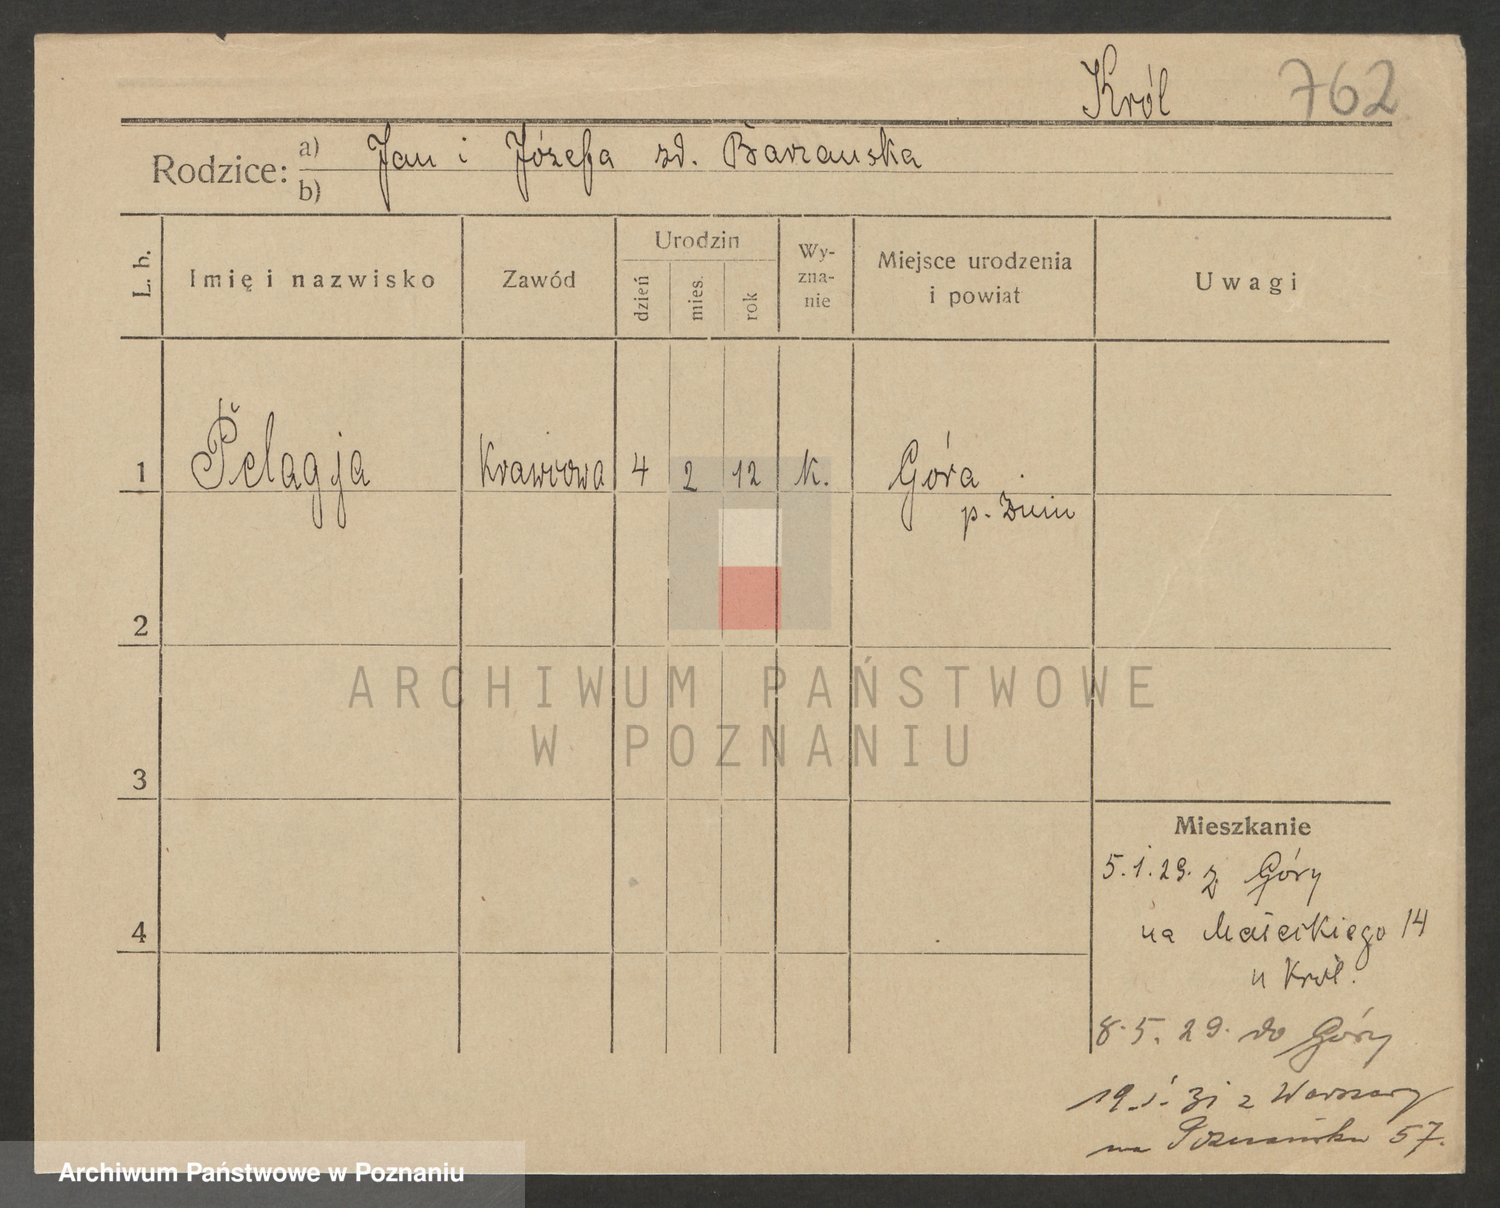 Król 762
Rodzice: a) Jan i Józefa zd. Barzauska
b)
L. b. Imię i nazwisko Zawód Urodzin dzień mies. rok Wy-zna-nie Miejsce urodzenia i powiat Uwagi
1 Pelagja Krawcowa 4 2 12 k. Góra
p. Żnin
2
ARCHIWUM PAŃSTWOWE
W POZNANIU
3
Mieszkanie
5.1.29. z Góry
4 na Małeckiego 14
u Król.
8.5.29. do Góry
19.1.31 z Warszawy
na Poznańska 57.
Archiwum Państwowe w Poznaniu